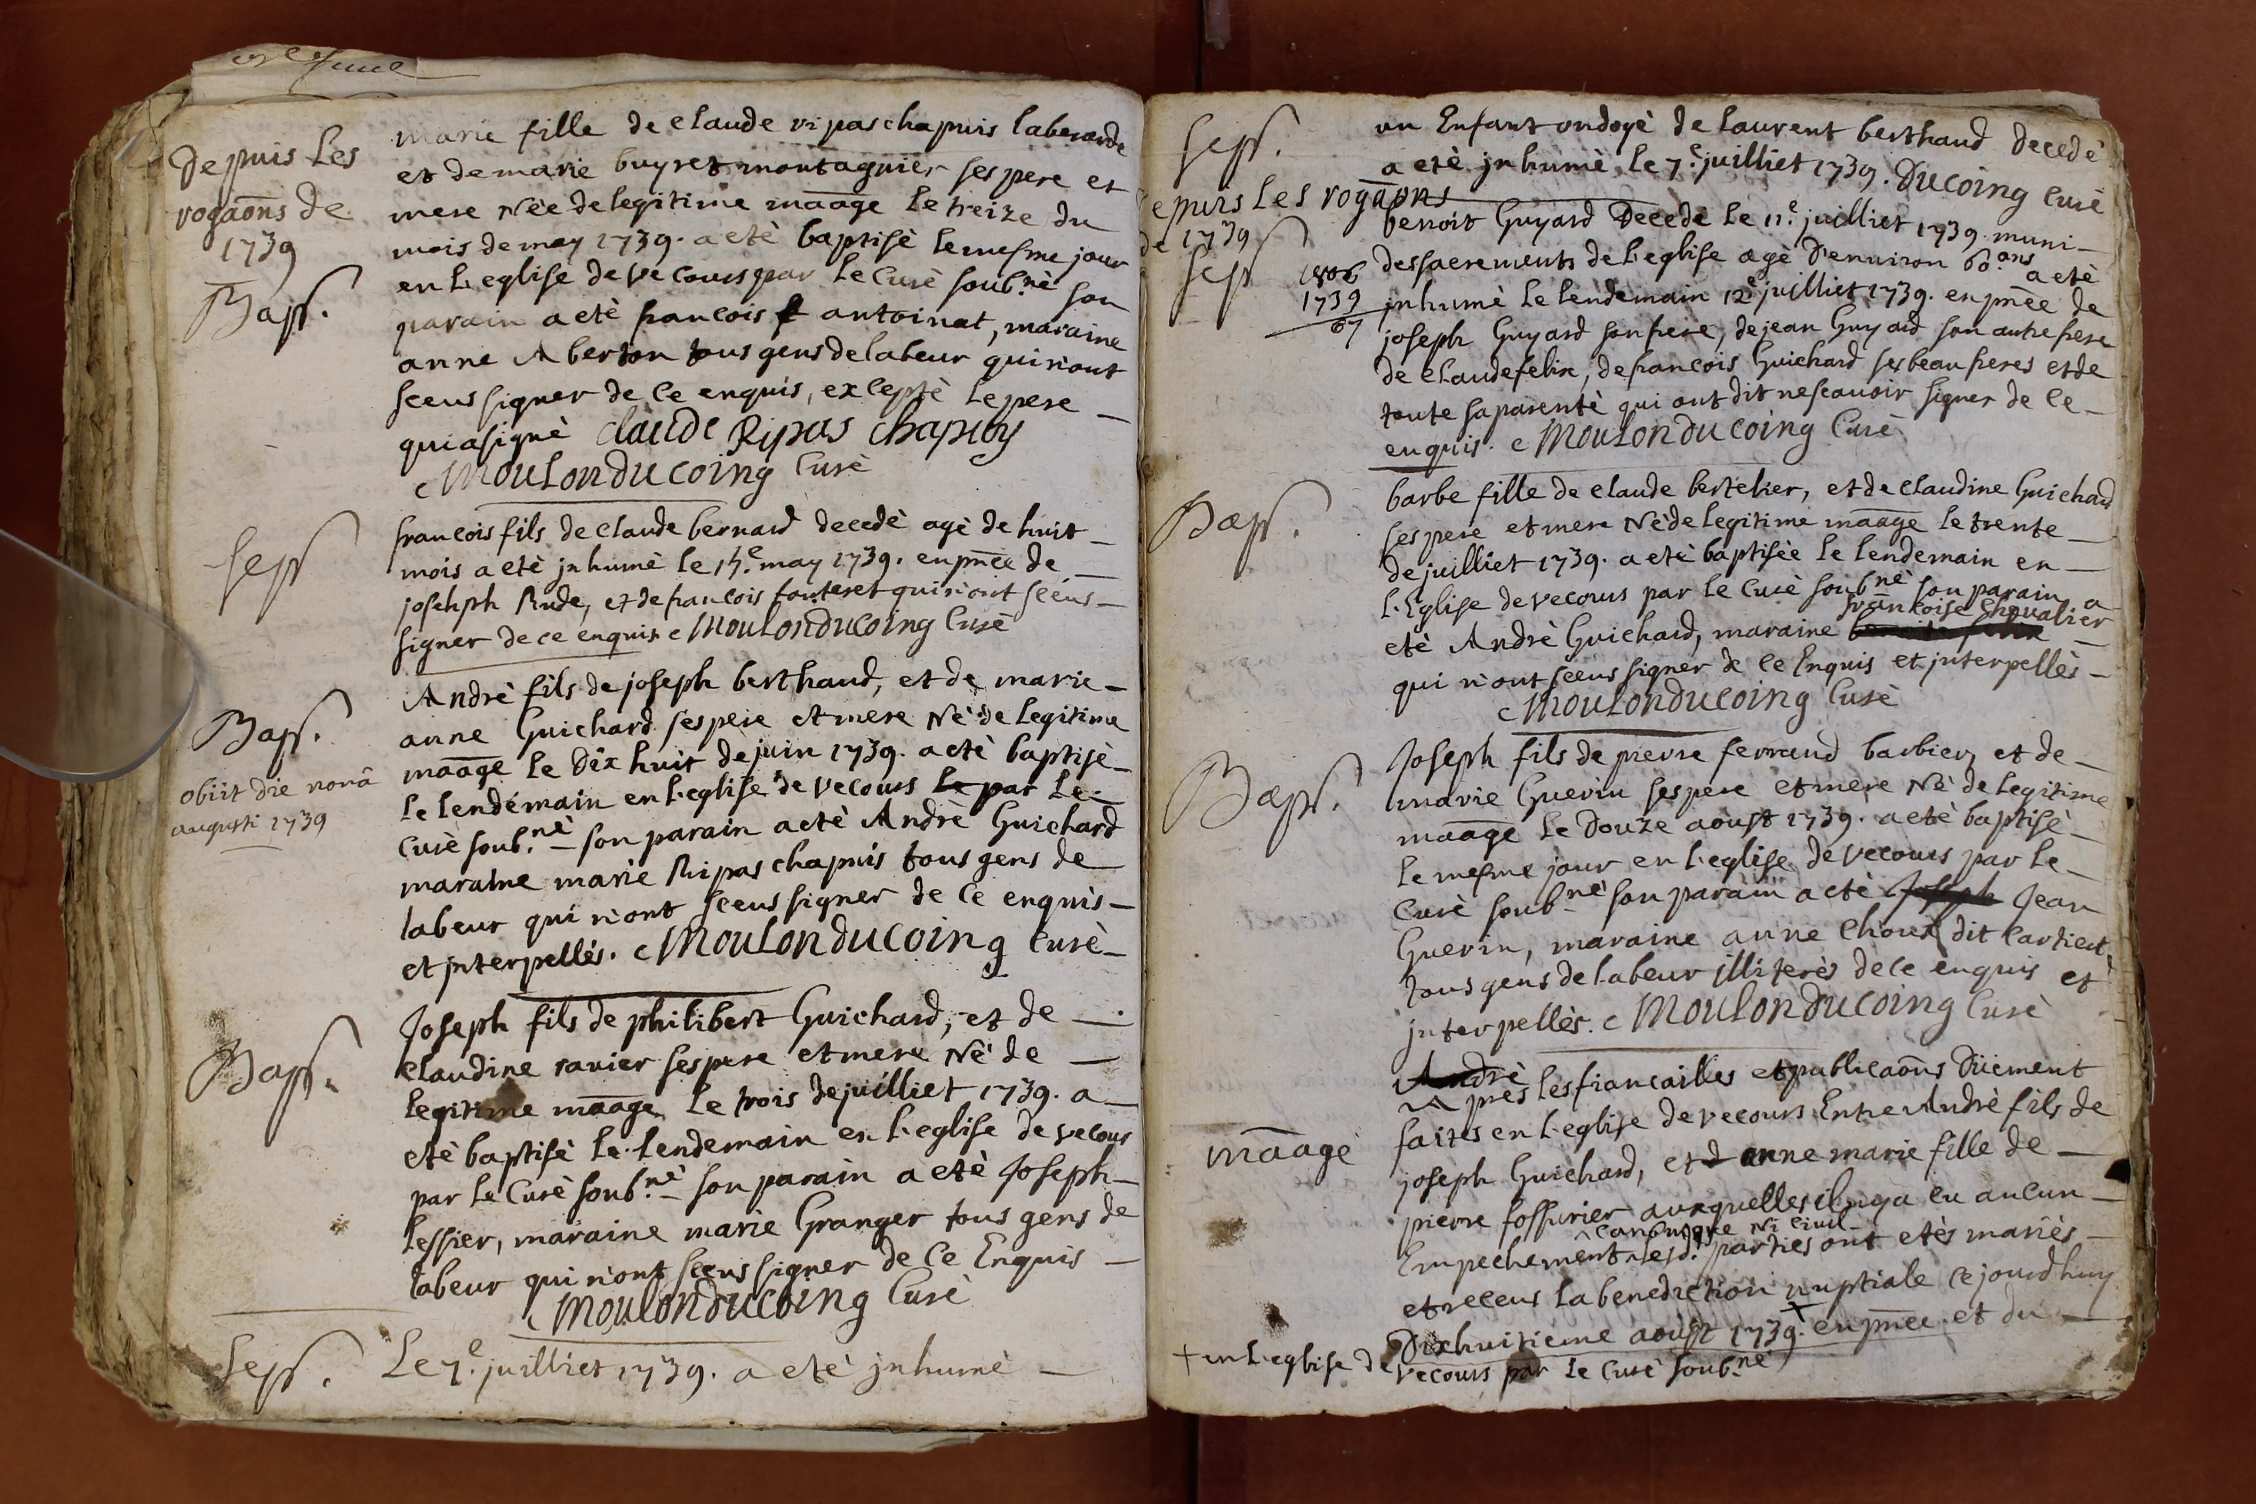 Depuis Les
rogaõns de
1739
Bapt.
marie fille de claude ripas chapuis laberarde
et de marie buyret montagnier ses pere et
mere Née de legitime mãage Le treize du
mois de may 1739. a etè baptisè le mesme jour
en L'eglise de vecours par Le Curè soub.nè son
parain a etè francois antoinat, maraine
anne Aberton tous gens de labeur qui n'ont
sceus signer de Ce enquis, exceptè Le pere
qui a signè Claude Ripas Chapuy
Moulonducoing Curè
sep
francois fils de claude bernard decedè agè de huit
mois a etè jnhumè le 15.e may 1739. en pñce de
josehph Rude, et de francois fonteret qui n'ont scéus
signer de ce enquis Moulonducoing Curè
Bapt.
obiit die nonâ
augusti 1739
Andrè fils de joseph berthaud, et de marie
anne Guichard ses pere et mere Nè de Legitime
mãage le Dix huit de juin 1739. a etè baptisè
le lendemain en L'eglise de vecours Le par Le
Curè soub.nè son parain a etè Andrè Guichard
maraine marie Ripas chapuis tous gens de
labeur qui n'ont sceus signer de Ce enquis
et jnterpellès. Moulonducoing Curè
Bapt.
Joseph fils de philibert Guichard, et de
claudine ravier ses pere et mere Nè de
legitime mãage Le trois de juilliet 1739. a
etè baptisè Le lendemain en L'eglise de vecours
par Le Curè soub.nè son parain a etè Joseph
Lessier, maraine marie Granger tous gens de
labeur qui n'ont sceus signer de Ce Enquis
Moulonducoing Curè
sept.
Le 7.e juilliet 1739. a etè jnhumè
sept.
un Enfant ondoyè de Laurent berthaud Decedè
a etè jnhumè le 7.e juilliet 1739. Ducoing Curè
Depuis Les rogaõns
de 1739
sep
1806
1739
67
benoit Guyard Decedè Le 11.e juilliet 1739. muni
des sacrements de L'eglise agè D'environ 60.ans a etè
jnhumè Le lendemain 12e juilliet 1739. en pñce de
joseph Guyard son frere, de jean Guyard son autre frere
de claude felix, de francois Guichard ses beau freres et de
toute sa parentè qui ont dit ne scauoir signer de Ce
enquis. Moulonducoing Curè
Bapt.
barbe fille de claude bertelier, et de claudine Guichard
ses pere et mere Nè de legitime mãage Le trente
de juilliet 1739. a etè baptisèe Le lendemain en
L'Eglise de vecours par Le Curè soub.nè son parain a
francoise chevalier
etè Andrè Guichard, maraine
qui n'ont sceus signer de Ce Enquis et jnterpellès
Moulonducoing Curè
Bapt.
Joseph fils de pierre ferrand barbier, et de
marie Guerin ses pere et mere Nè de Legitime
mãage Le Douze aoust 1739. a etè baptisè
le mesme jour en L'eglise de vecours par Le
Curè soub.nè son parain a etè Joseph Jean
Guerin, maraine anne Choux dit
tous gens de labeur illiterès de Ce enquis et
jnterpellès. Moulonducoing Curè
mãage
Andrè
Après les fiancailles et publicaõns Düement
faites en L'eglise de vecours Entre Andrè fils de
joseph Guichard, et d anne marie fille de
pierre fossurier auxquelles il n'y a eu aucun
canonique ni civil
Empechement lesd. parties ont etès mariès
et receus La benediction nuptiale Ce jourdhuy
Dixhuitieme aoust 1739.+ en pñce et du
+ en L'eglise de vecours par Le Curè soub.nè